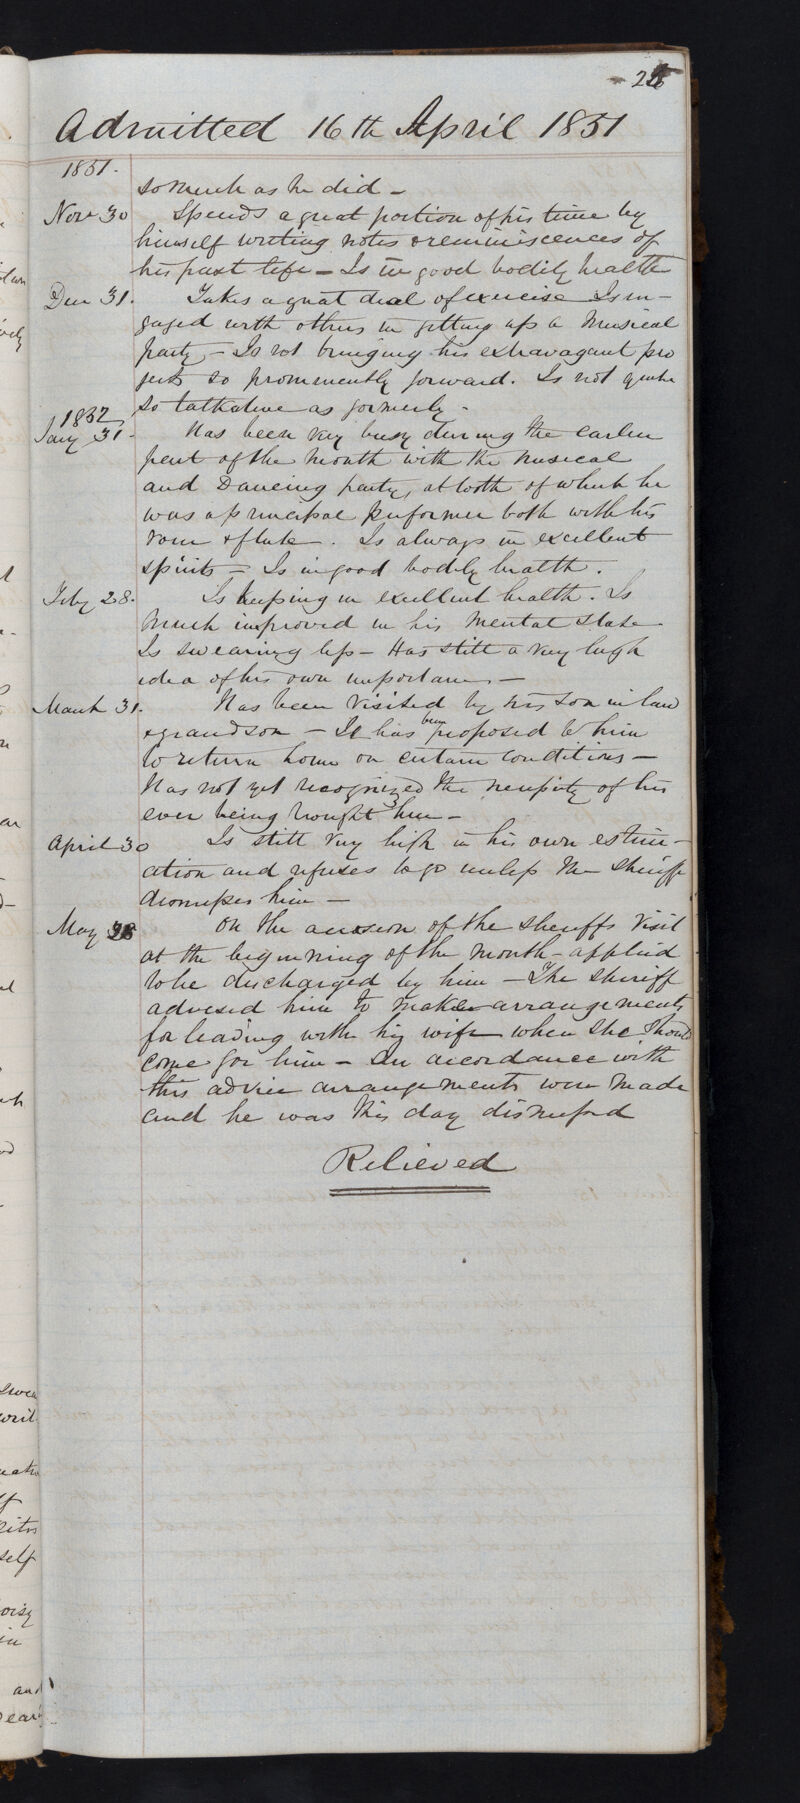 Admitted 16th April 1851
1851.
so much as he did –
Nov 30 Spends a great portion of his time by
himself writing notes & reminiscences of
his past life – Is in good bodily health
Dec 31. Takes a great deal of exercise Is en-
gaged with others in getting up a musical
party – Is not bringing his extravagant pro
jects so prominently forward. Is not quite
so talkative as formerly –
1852
Jany 31 – Has been very busy during the earlier
part of the month with the musical
and Dancing party, at both of which he
was a principal performer both with his
voice & flute –. Is always in excellent
spirits – Is in good bodily health.
Feby 28. Is keeping in excellent health. Is
much improved in his mental state
Is swearing less – Has still a very high
idea of his own importance –
March 31. Has been visited by his son in law
& grandson – It has been proposed to him
to return home on certain conditions –
Has not yet recognized the necessity of his
ever being brought here –
April 30 Is still very high in his own estim-
ation and refuses to go unless the Sheriff
dismisses him –
May 28 On the occasion of the sheriffs visit
at the beginning of the month – applied
to be discharged by him – The sheriff
advised him to make arrangements
for leaving with his wife when she should
come for him – In accordance with
this advice arrangements were made
and he was this day dismissed
Relieved